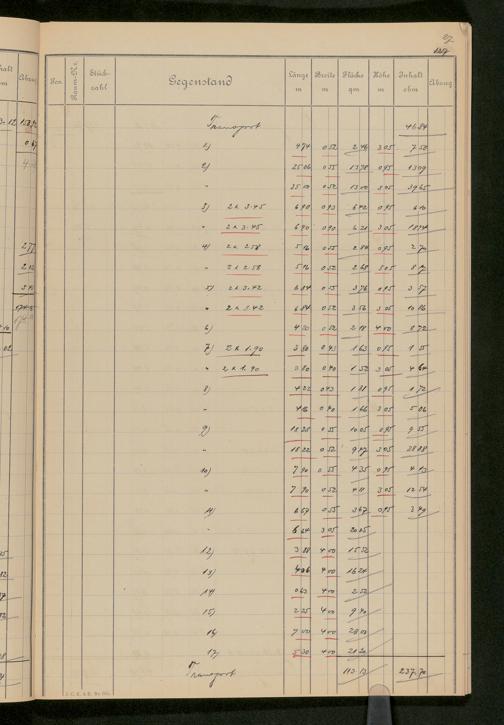 27
127
Pos.
Raum-Nr.
Stück-zahl
Gegenstand
Länge m
Breite m
Fläche qm
Höhe m
Inhalt cbm
Abzug
Transport 46.84
1) 4.74 0.52 2.46 3.05 7.50
2) 25.06 0.55 13.78 0.95 13.09
" 25.10 0.52 13.00 3.05 39.65
3) 2 x 3.45 6.90 0.93 6.42 0.95 6.10
" 2 x 3.45 6.90 0.90 6.21 3.05 18.94
4) 2 x 2.58 5.16 0.55 2.84 0.95 2.70
" 2 x 2.58 5.16 0.52 2.68 3.05 8.17
5) 2 x 3.42 6.84 0.55 3.76 0.95 3.57
" 2 x 3.42 6.84 0.52 3.56 3.05 10.86
6) 4.20 0.52 2.18 4.00 8.72
7) 2 x 1.90 3.80 0.43 1.63 0.95 1.55
" 2 x 1.90 3.80 0.40 1.52 3.05 4.64
8) 4.22 0.43 1.81 0.95 1.72
" 4.16 0.40 1.66 3.05 5.06
9) 18.28 0.55 10.05 0.95 9.55
" 18.22 0.52 9.47 3.05 28.88
10) 7.90 0.55 4.35 0.95 4.13
" 7.90 0.52 4.11 3.05 12.54
11) 6.67 0.55 3.67 0.95 3.49
" 6.64 3.05 20.25
12) 3.88 4.00 15.52
13) 4.06 4.00 16.24
14) 0.63 4.00 2.52
15) 2.35 4.00 9.40
16) 7.00 4.00 28.00
17) 5.30 4.00 21.20
Transport 113.13 237.70